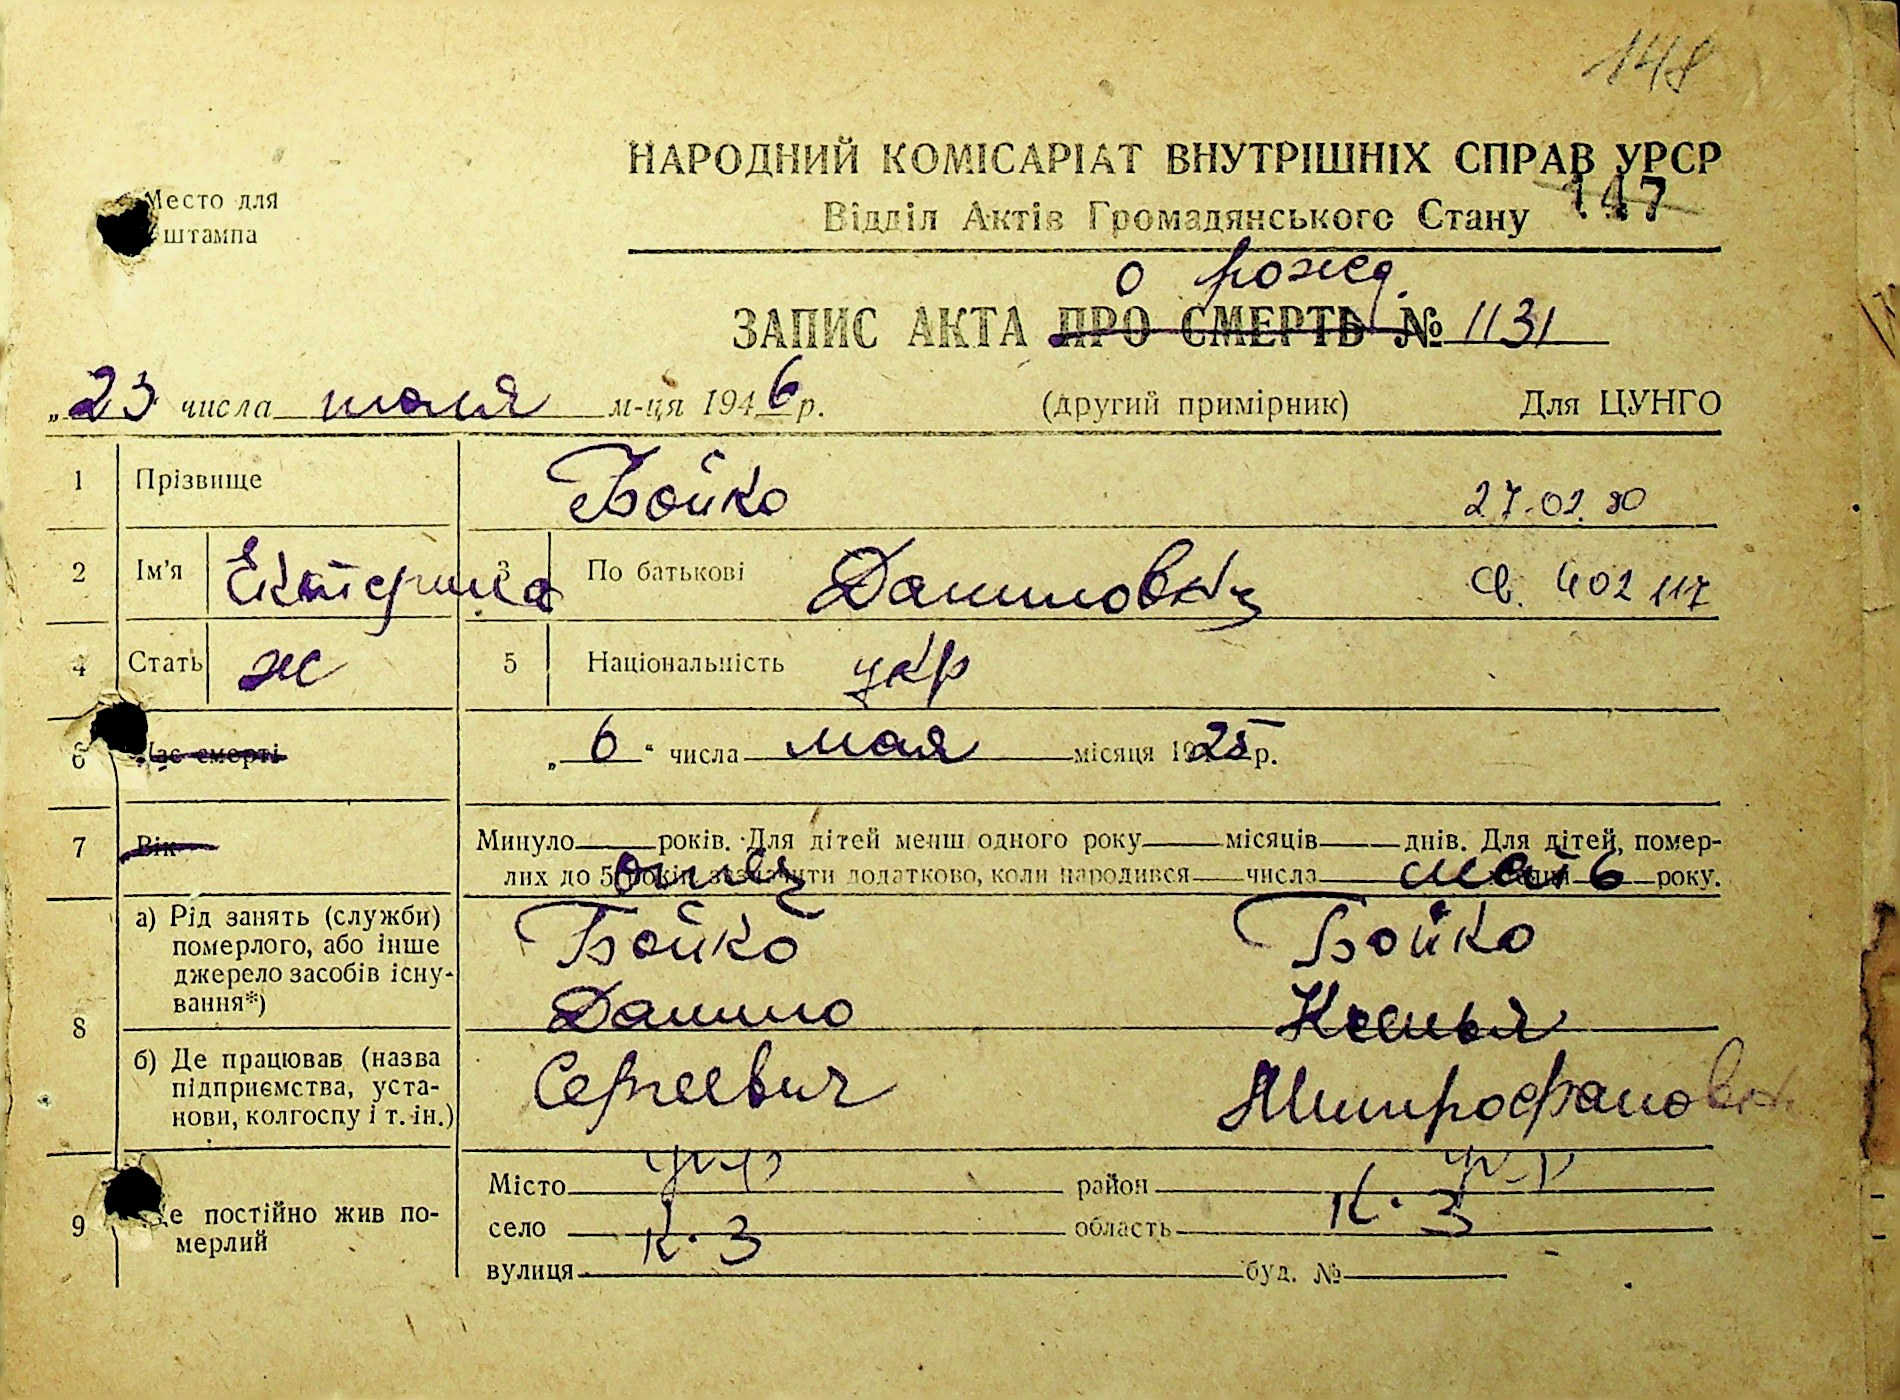 148
Место для
штампа
НАРОДНИЙ КОМІСАРІАТ ВНУТРІШНІХ СПРАВ УРСР
147
Відділ Актів Громадянського Стану
о рожд.
ЗАПИС АКТА ПРО СМЕРТЬ № 1131
„23 числа июля м-ця 1946 р. (другий примірник) Для ЦУНГО
1 Прізвище Бойко 27.02.80
2 Ім'я Екатерина 3 По батькові Даниловна Св. 402117
4 Стать ж 5 Національність укр
6 Час смерті „6“ числа мая місяця 1925 р.
7 Вік Минуло років. Для дітей менш одного року місяців днів. Для дітей, помер-
лих до 5 років зазначити додатково, коли народився числа року.
отец мать
8 а) Рід занять (служби)
померлого, або інше
джерело засобів існу-
вання*)
Бойко Бойко
Данило Ксенья
б) Де працював (назва
підприємства, уста-
нови, колгоспу і т. ін.)
Сергеевич Митрофановна
укр укр
9 Де постійно жив по-
мерлий
Місто район
село К.З область К.З
вулиця буд. №